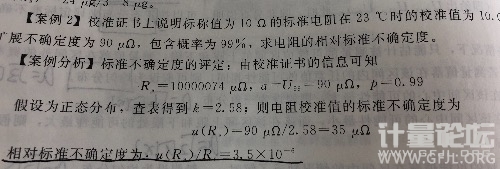 【案例2】校准证书上说明标称值为10 Ω的标准电阻在23 ℃时的校准值为10.0
扩展不确定度为90 μΩ,包含概率为99%,求电阻的相对标准不确定度。
【案例分析】标准不确定度的评定:由校准证书的信息可知
Rₛ=10000074 μΩ, a=U₉₉=90 μΩ, p=0.99
假设为正态分布,查表得到k=2.58;则电阻校准值的标准不确定度为
u(Rₛ)=90 μΩ/2.58=35 μΩ
相对标准不确定度为:u(Rₛ)/Rₛ=3.5×10⁻⁶
计量论坛
WWW.GFJL.ORG